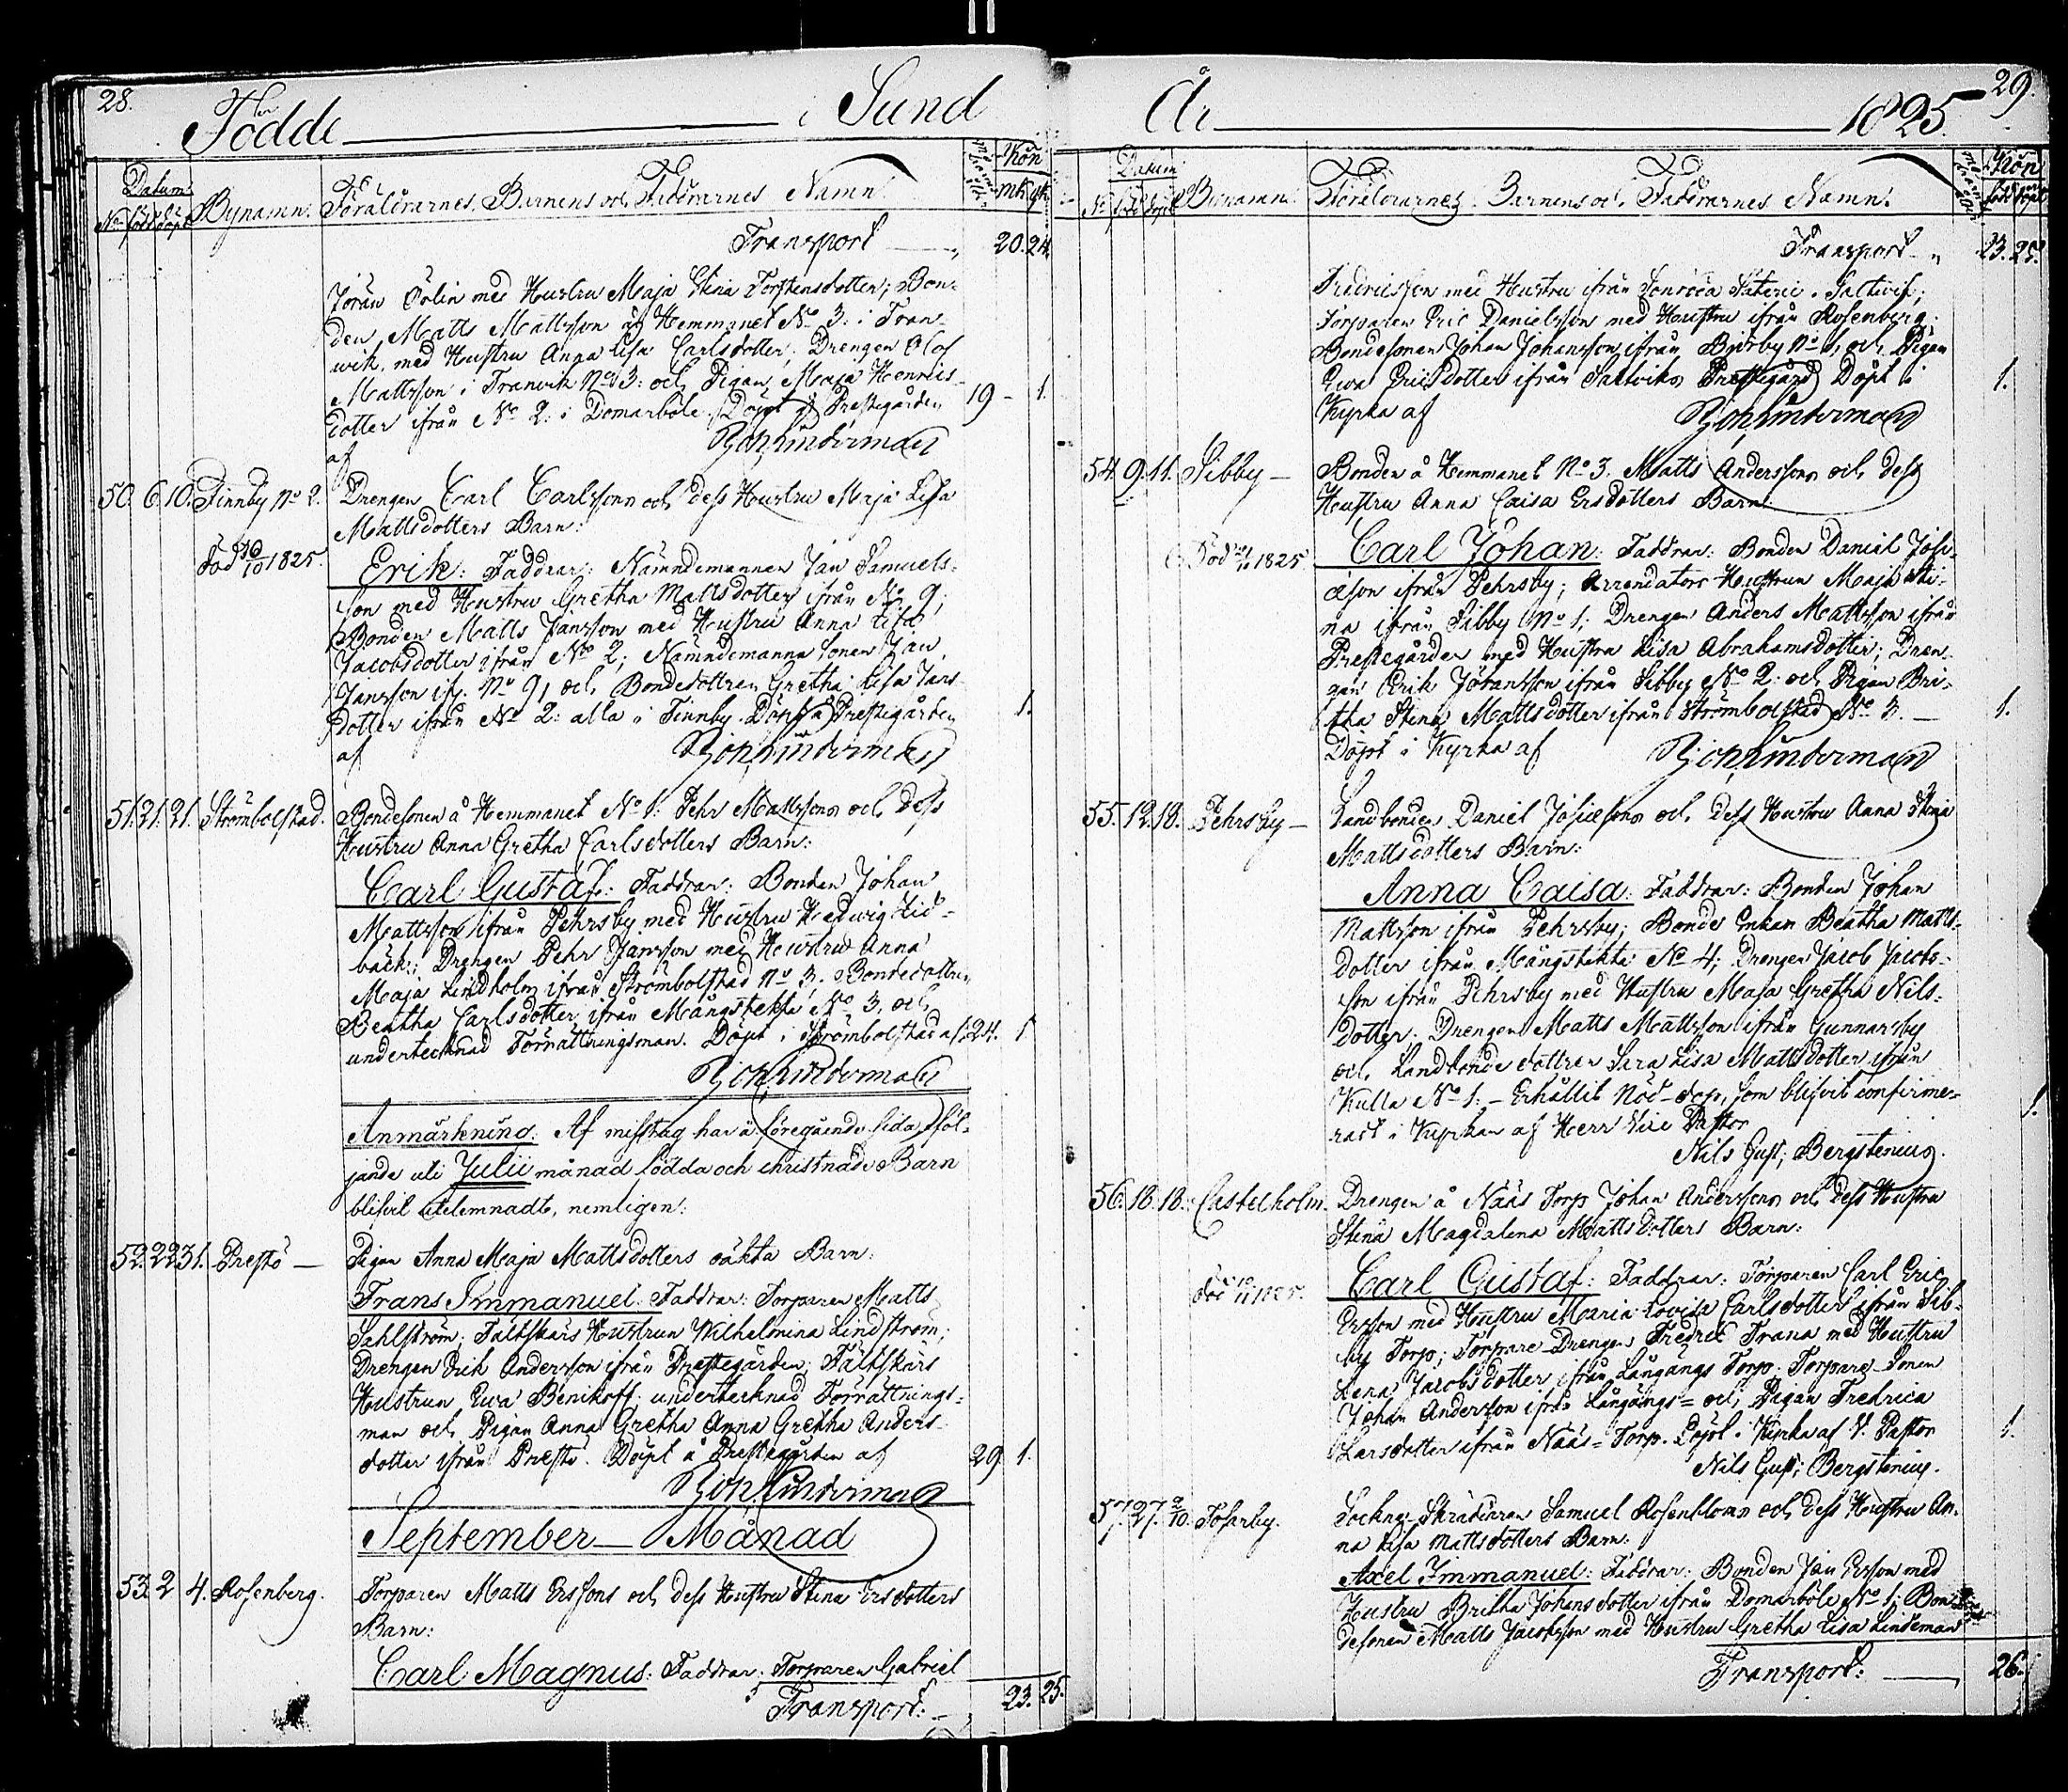 28.
Födde i Sund
Datum
Kön
No född döpt Bynamn. Föräldrarnes, Barnens och Faddrarnes Namn.
mk. qk.
Transport 20. 24.
Jöran Öölin med Hustru Maja Stina Torstensdotter; Bon-
den Matts Mattsson å Hemmanet No 3. i Tran-
wik, med Hustru Anna Lisa Carlsdotter; Drengen Olof
Mattsson i Tranvik No 3: och Pigan Maja Henrics-
dotter ifrån No 2: i Domarböle. Döpt å Prestegården 19 - 1.
af
50. 6. 10. Finnby No 2. Drengen Carl Carlssons och dess Hustru Maja Lisa
Mattsdotters Barn:
död 10/10 1825. Erik: Faddrar: Nämndemannen Jan Samuels-
son med Hustru Gretha Mattsdotter ifrån No 9;
Bonden Matts Jansson med Hustru Anna Lisa
Jacobsdotter ifrån No 2; Nämndemanna Sonen Jan
Jansson ifr. No 9, och Bondedottren Gretha Lisa Jans-
dotter ifrån No 2: alla i Finnby. Döpt å Prestegården 1.
af
51. 21. 21. Strömbolstad. Bondesonen å Hemmanet No 1: Pehr Mattssons och dess
Hustru Anna Gretha Carlsdotters Barn:
Carl Gustaf: Faddrar: Bonden Johan
Mattsson ifrån Pehrsby med Hustru Hedwig Lid-
bäck; Drengen Pehr Jansson med Hustru Anna
Maja Lindholm ifrån Strömbolstad No 3. Bondedottren
Beatha Carlsdotter ifrån Mångstekta No 3, och
undertecknad Förrättningsman. Döpt i Strömbolstad af: 24. 1
Anmärkning: Af misstag har å föregående sida föl-
jande uti Julii månad födda och christnade Barn
blifvit utelemnadt, nemligen:
52. 22 31. Prestö — Pigan Anna Maja Mattsdotters oäkta Barn:
Frans Immanuel: Faddrar: Torparen Matts
Sahlström; Fältskärs Hustrun Wilhelmina Lindström;
Drengen Erik Andersson ifrån Prestegården; Fältskärs
Hustrun Ewa Benikoff. undertecknad Förrättnings-
man och Pigan Anna Gretha Anna Gretha Anders-
dotter ifrån Prestö. Döpt å Prestegården af 29 1.
September — Månad
53. 2 4. Rosenberg. Torparen Matts Erssons och dess Hustru Stina Ersdotters
Barn:
Carl Magnus: Faddrar: Torparen Gabriel
Transport: 23. 25.
29.
År 1825
Datum
Kön
Föräldrarnes, Barnens och Faddrarnes Namn.
Transport 23. 25.
Fredricsson med Hustru ifrån Sonröda Säteri i Saltvik;
Torparen Eric Danielsson med Hustru ifrån Rosenberg;
Bondesonen Johan Johansson ifrån Björby No 1, och Pigan
Ewa Ericsdotter ifrån Saltviks Prestegård Döpt i 1.
Kyrka af
54. 9. 11. Sibby — Bonden å Hemmanet No 3. Matts Anderssons och dess
Hustru Anna Caisa Ersdotters Barn:
Död 1825 Carl Johan: Faddrar: Bonden Daniel Josi-
æson ifrån Pehrsby; Arrendators Hustrun Maja Sti-
na ifrån Sibby No 1; Drengen Anders Mattsson ifrån
Prestegården med Hustru Lisa Abrahamsdotter; Dren-
gen Erik Johansson ifrån Sibby No 2: och Pigan Bri-
tha Stina Mattsdotter ifrån Strömbolstad No 3. — 1.
Döpt i Kyrka af
55. 12. 18. Pehrsby — Landbonden Daniel Josiæsons och dess Hustru Anna Stina
Mattsdotters Barn:
Anna Caisa: Faddrar: Bonden Johan
Mattsson ifrån Pehrsby; Bonde Enkan Beatha Matts-
dotter ifrån Mångstekta No 4; Drengen Jacob Jacobs-
son ifrån Pehrsby med Hustru Maja Gretha Nils-
dotter; Drengen Matts Mattsson ifrån Gunnarsby
och Landbonde dottren Sara Lisa Mattsdotter ifrån
Kulla No 1: - Erhållit Nöd-dop, som blifvit confirme- 1.
radt i Kyrkan af Herr Vice Pastor
Nils Gust; Bergstenius.
56. 18. 18. Castelholm. Drengen å Nääs Torp Johan Anderssons och dess Hustru
Stina Magdalena Mattsdotters Barn:
Carl Gustaf: Faddrar: Torparen Carl Eric
Ersson med Hustru Maria Lovisa Carlsdotter ifrån Sib-
by Torp; Torpare-Drengen Fredric Frana med Hustru
Lena Jacobsdotter ifrån Långängs Torp. Torpare-Sonen
Johan Andersson ifrån Långängs= och Pigan Fredrica
Larsdotter ifrån Nääs=Torp. Döpt i Kyrka af V. Pastor 1.
Nils Gust; Bergstenius.
57. 27. 2/10. Tosarby. Sockne Skräddaren Samuel Rosenbloms och dess Hustru An-
na Lisa Mattsdotters Barn:
Axel Immanuel: Faddrar: Bonden Jan Ersson med
Hustru Britha Johansdotter ifrån Domarböle No 1; Bon-
desonen Matts Jacobsson med Hustru Gretha Lisa Lindeman
Transport: 26.